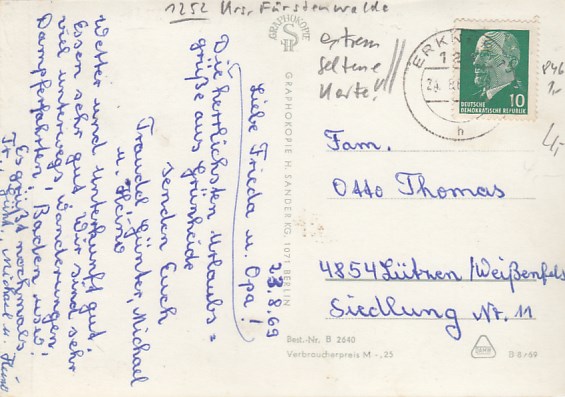 1252 Krs. Fürstenwalde
extrem
seltene
Karte!!
GRAPHOKOPIE
ERKN
12
24. 8.
h
DEUTSCHE
DEMOKRATISCHE REPUBLIK
10
846
1,-
4,-
23.8.69
Liebe Frieda u. Opa!
Die herzlichsten Urlaubs=
grüße aus Grünheide
senden Euch
Traudel, Günter, Michael
u. Heino
Wetter und Unterkunft gut,
Essen sehr gut. Wir sind sehr
viel unterwegs, Wanderungen,
Dampferfahrten, Baden usw.
Es grüßt nochmals
Tr., Günt., Michael u. Heino
GRAPHOKOPIE H. SANDER KG, 1071 BERLIN
Fam.
Otto Thomas
4854 Lützen/Weißenfels
Siedlung Nr. 11
Best.-Nr. B 2640
Verbraucherpreis M -,25
B 8/69